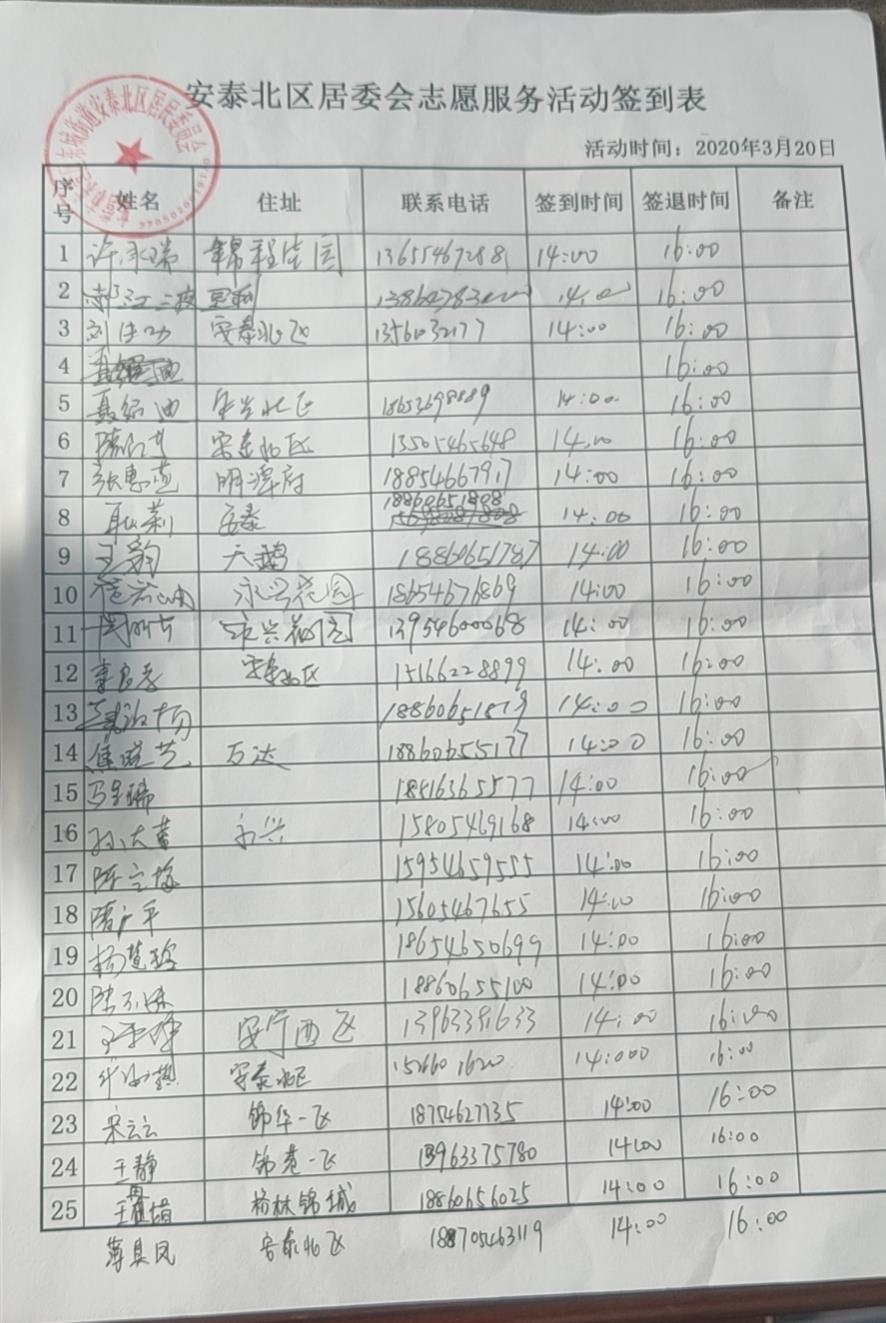 安泰北区居委会志愿服务活动签到表
活动时间：2020年3月20日
序号 姓名 住址 联系电话 签到时间 签退时间 备注
1 许永瑞 锦程佳园 13655467288 14:00 16:00
2 14:00 16:00
3 刘佳功 安泰北区 1356032177 14:00 16:00
4 16:00
5 聂绍迪 安泰北区 18653698889 14:00 16:00
6 安泰北区 13505465648 14:00 16:00
7 张惠莲 明潭府 18854667917 14:00 16:00
8 耿莉 安泰 18860651808 14:00 16:00
9 王韵 天鹅 18860651787 14:00 16:00
10 永兴花园 18654676869 14:00 16:00
11 永兴花园 13954600068 14:00 16:00
12 安泰北区 15166228899 14:00 16:00
13 18860651879 14:00 16:00
14 焦晓艺 万达 18860655177 14:00 16:00
15 马呈瑞 18816365577 14:00 16:00
16 永兴 15805469168 14:00 16:00
17 陈立梅 15954659555 14:00 16:00
18 隋广平 15605467655 14:00 16:00
19 杨慧玲 18654650699 14:00 16:00
20 18860655100 14:00 16:00
21 安宁西区 13963381633 14:00 16:00
22 安泰北区 152660 1620 14:000 16:00
23 宋云云 锦华一区 18754627135 14:00 16:00
24 王静 锦苑一区 13963375780 14:00 16:00
25 榕林锦城 18860656025 14:00 16:00
薄其凤 安泰北区 188705463119 14:00 16:00